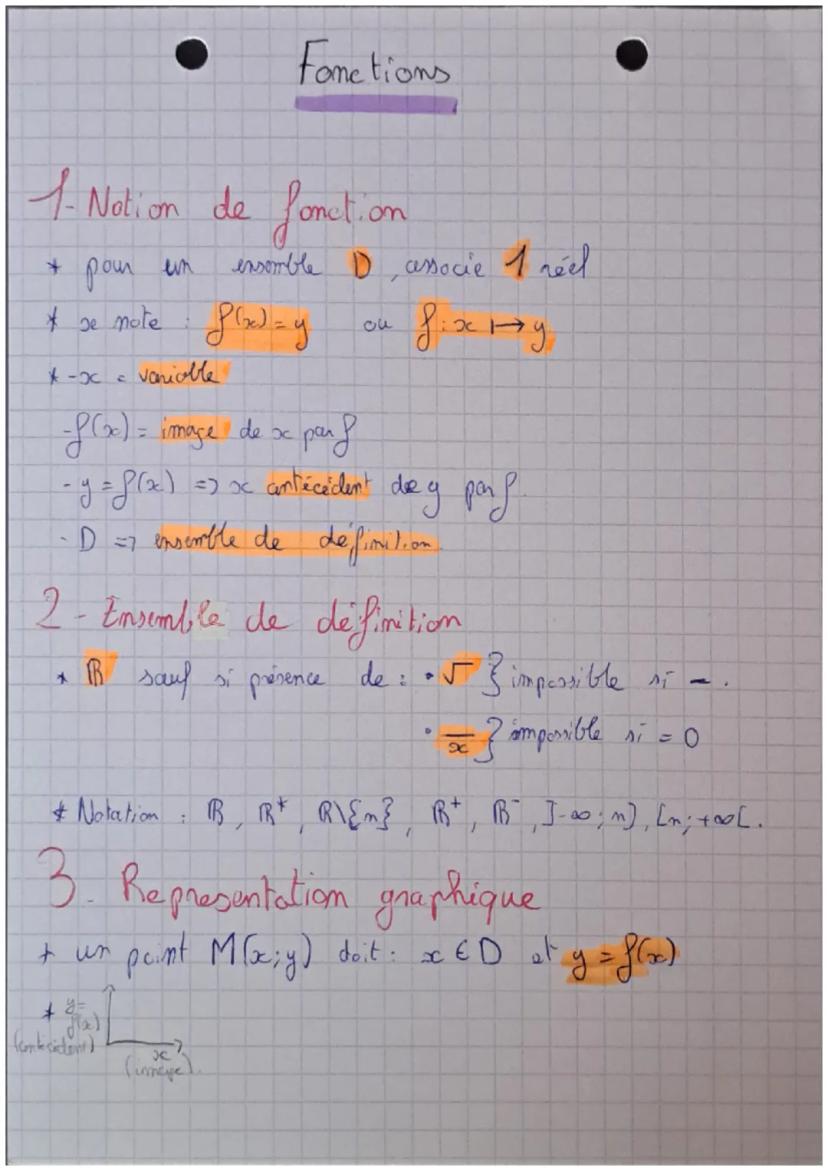 Fonctions
1- Notion de fonction
* pour un ensemble D, associe 1 réel
* se note : f(x) = y ou f : x ↦ y
* -x = variable
-f(x) = image de x par f
-y = f(x) => x antécédent de y par f
- D => ensemble de définition
2 - Ensemble de définition
* ℝ sauf si présence de : • √ } impossible si -.
• —/x } impossible si = 0
* Notation : ℝ, ℝ*, ℝ\{n}, ℝ⁺, ℝ⁻, ]-∞; n], [n; +∞[.
3- Representation graphique
* un point M(x; y) doit : x ∈ D et y = f(x)
* y =
f(x)
(antécédent)
x
(image).